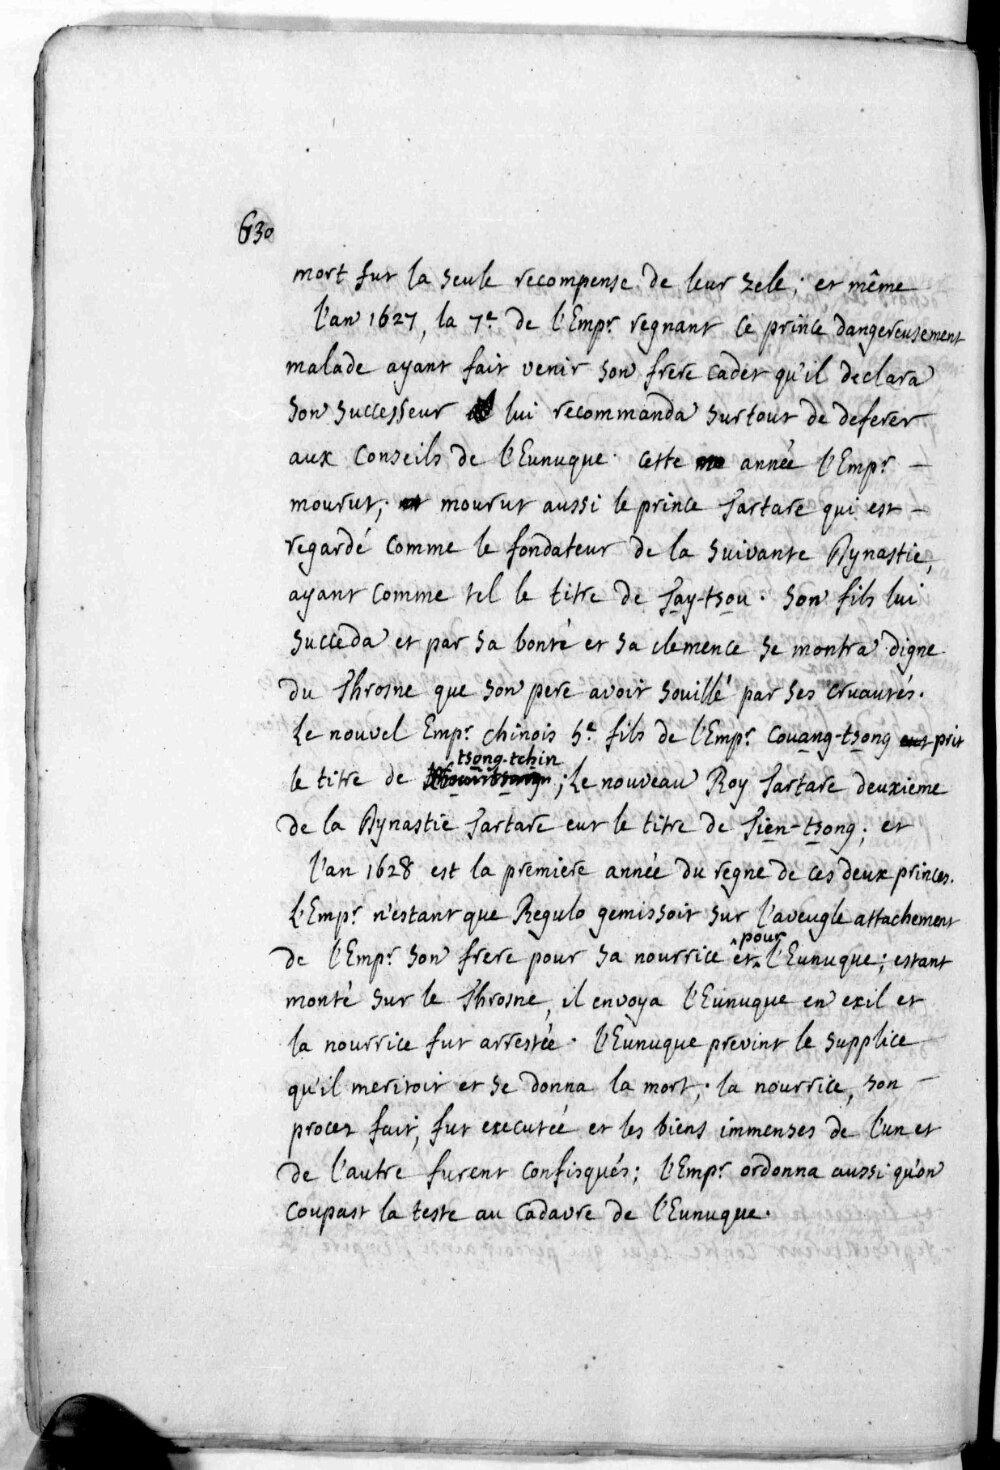 630
mort fut la seule recompense de leur zele; et même
l'an 1627, la 7e de l'Empr regnant ce prince dangereusement
malade ayant fait venir son frere cadet qu'il declara
son successeur lui recommanda surtout de deferer
aux Conseils de l'Eunuque. cette année l'Empr –
mourut; mourut aussi le prince Tartare qui est –
regardé comme le fondateur de la suivante Dynastie,
ayant comme tel le titre de Tay-tsou. Son fils lui
succeda et par sa bonté et sa clemence se montra digne
du Throsne que son pere avoit souillé par ses cruautés.
Le nouvel Empr chinois 5e fils de l'Empr Couang-tsong prit
tsong-tchin
le titre de ; Le nouveau Roy Tartare deuxieme
de la Dynastie Tartare eut le titre de Tien-tsong; et
l'an 1628 est la premiere année du regne de ces deux princes.
L'Empr n'estant que Regulo gemissoit sur l'aveugle attachement
pour
de l'Empr son frere pour sa nourrice et l'Eunuque; estant
monté sur le Throsne, il envoya l'Eunuque en exil et
la nourrice fut arrestée. l'Eunuque prevint le supplice
qu'il meritoit et se donna la mort; la nourrice, son –
procez fait, fut executée et les biens immenses de l'un et
de l'autre furent confisqués; l'Empr ordonna aussi qu'on
coupast la teste au cadavre de l'Eunuque.